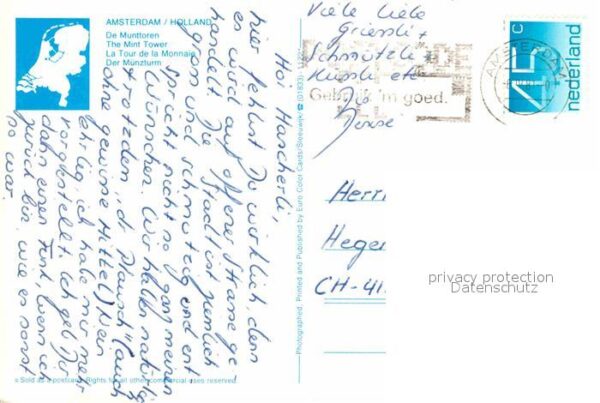 AMSTERDAM / HOLLAND
De Munttoren
The Mint Tower
La Tour de la Monnaie
Der Münzturm
Hoi Hascherli,
hier fehlst Du wirklich, denn
es wird auf offener Strasse ge-
handelt. Die Stadt ist ziemlich
gross und schmutzig und ent-
spricht nicht so ganz meinen
Wünschen. Wir hatten natürlich
trotzdem "dr Plausch" (auch
ohne gewisse Mittel) Nein
ehrlig, ich habe mir mehr
vorgestellt. Ich geb Dir
dann einen Funk, wenn ich
zurück bin, wie es sonst
so war.
Viele liebe
Griessli +
Schmützli +
Küssli etc.
Dis
AMSTERDAM
Gebruik 'm goed.
45 c
nederland
Photographed, Printed and Published by Euro Color Cards/Sleeuwijk/☎ (01833)
Herrn
Hegen
CH-41
privacy protection
Datenschutz
Sold as a postcard. Rights for all other commercial uses reserved.